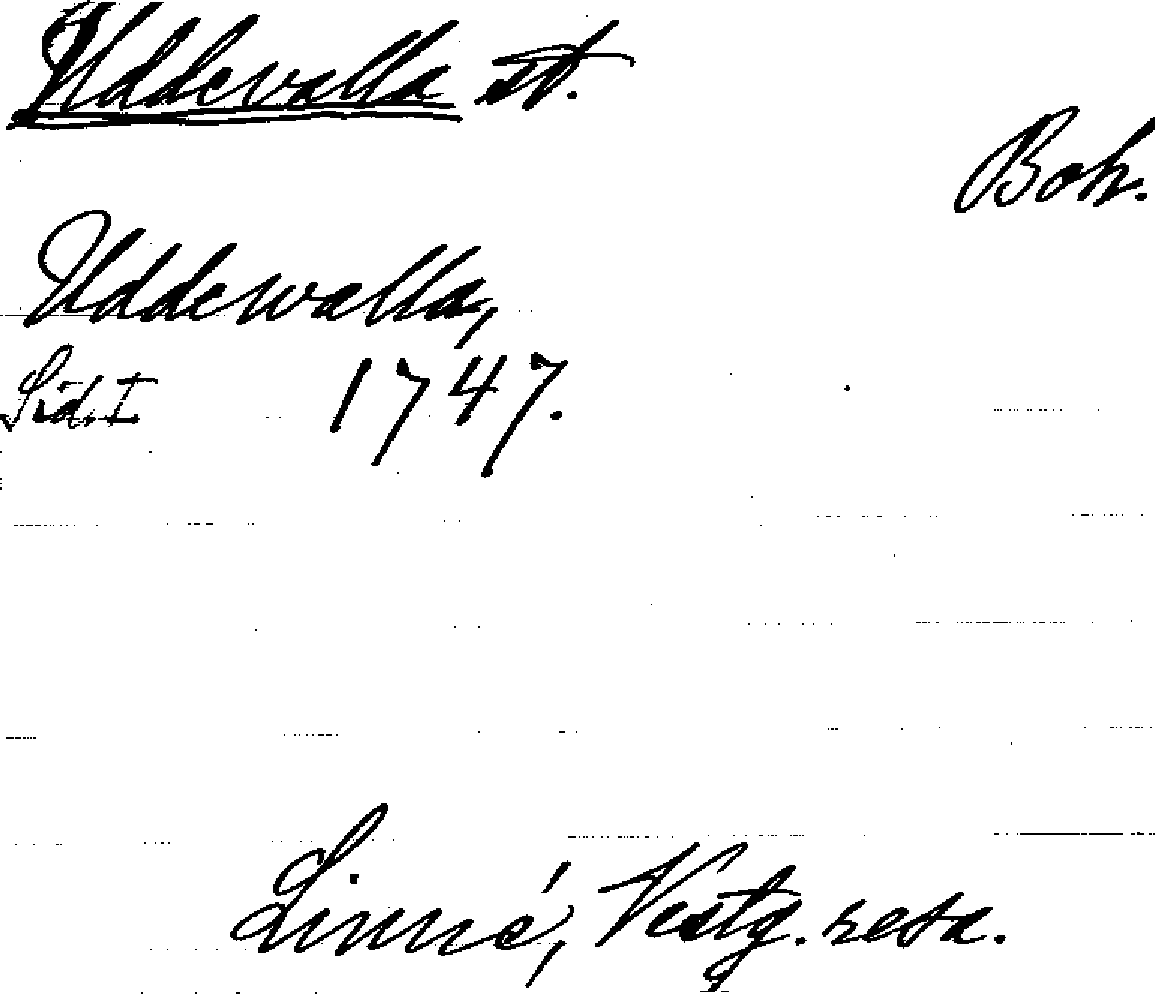 Uddevalla st.
Boh.
Uddewalla,
Sid. I 1747.
Linné, Vestg. resa.